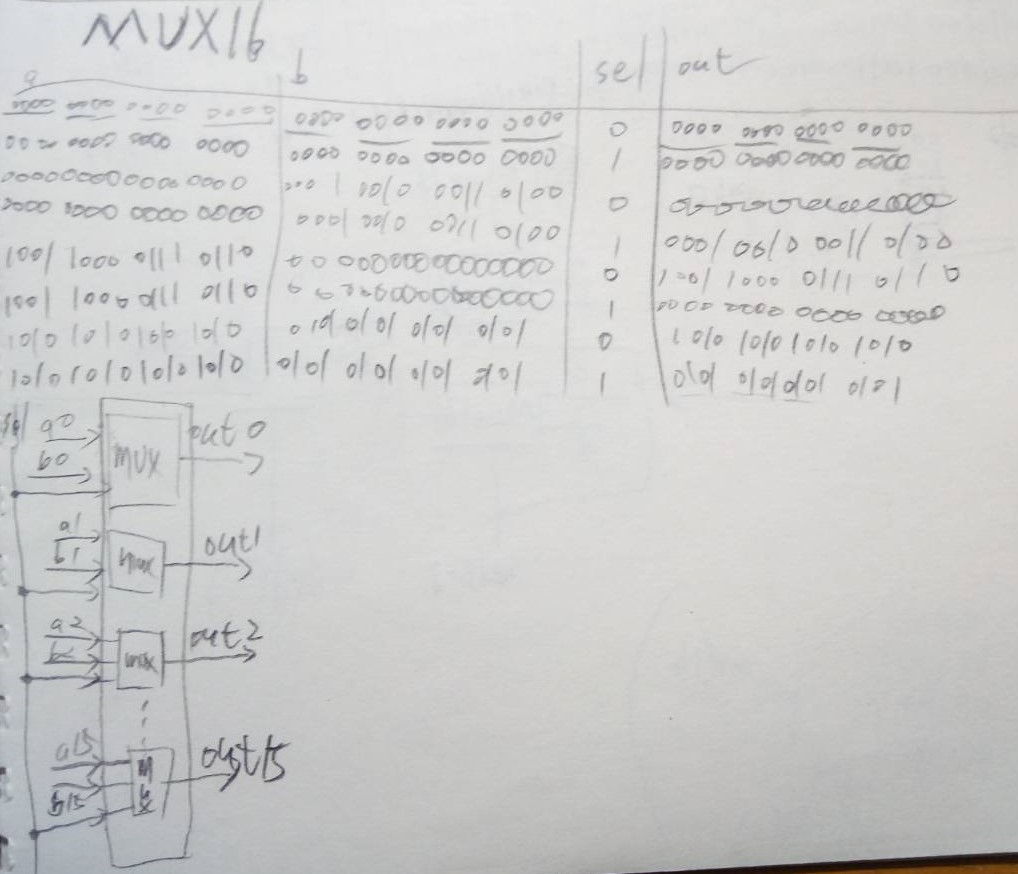 MUX16
a b sel out
0000 0000 0000 0000 0000 0000 0000 0000 0 0000 0000 0000 0000
0000 0000 0000 0000 0000 0000 0000 0000 1 0000 0000 0000 0000
0000000000000000 0010 1100 0100 1 000 0 0000000000000000
0000 0000 0000 0000 0010 1100 0010 1000 1 0001 0010
1001 1000 0111 0110 0000000000000000 0 1001 1000 0111 0110
1001 0110 0000000000000000 1 0000 0000 0000 0000
1010 1010 1010 1010 0101 0101 0101 0101 0 1010 1010 1010 1010
1010101010101010 0101 0101 0101 0101 1 0101 0101 0101 0101
sel a0 out 0
b0 MUX
a1 out1
b1 mux
a2 out2
mux
a15 out15
b15 mux